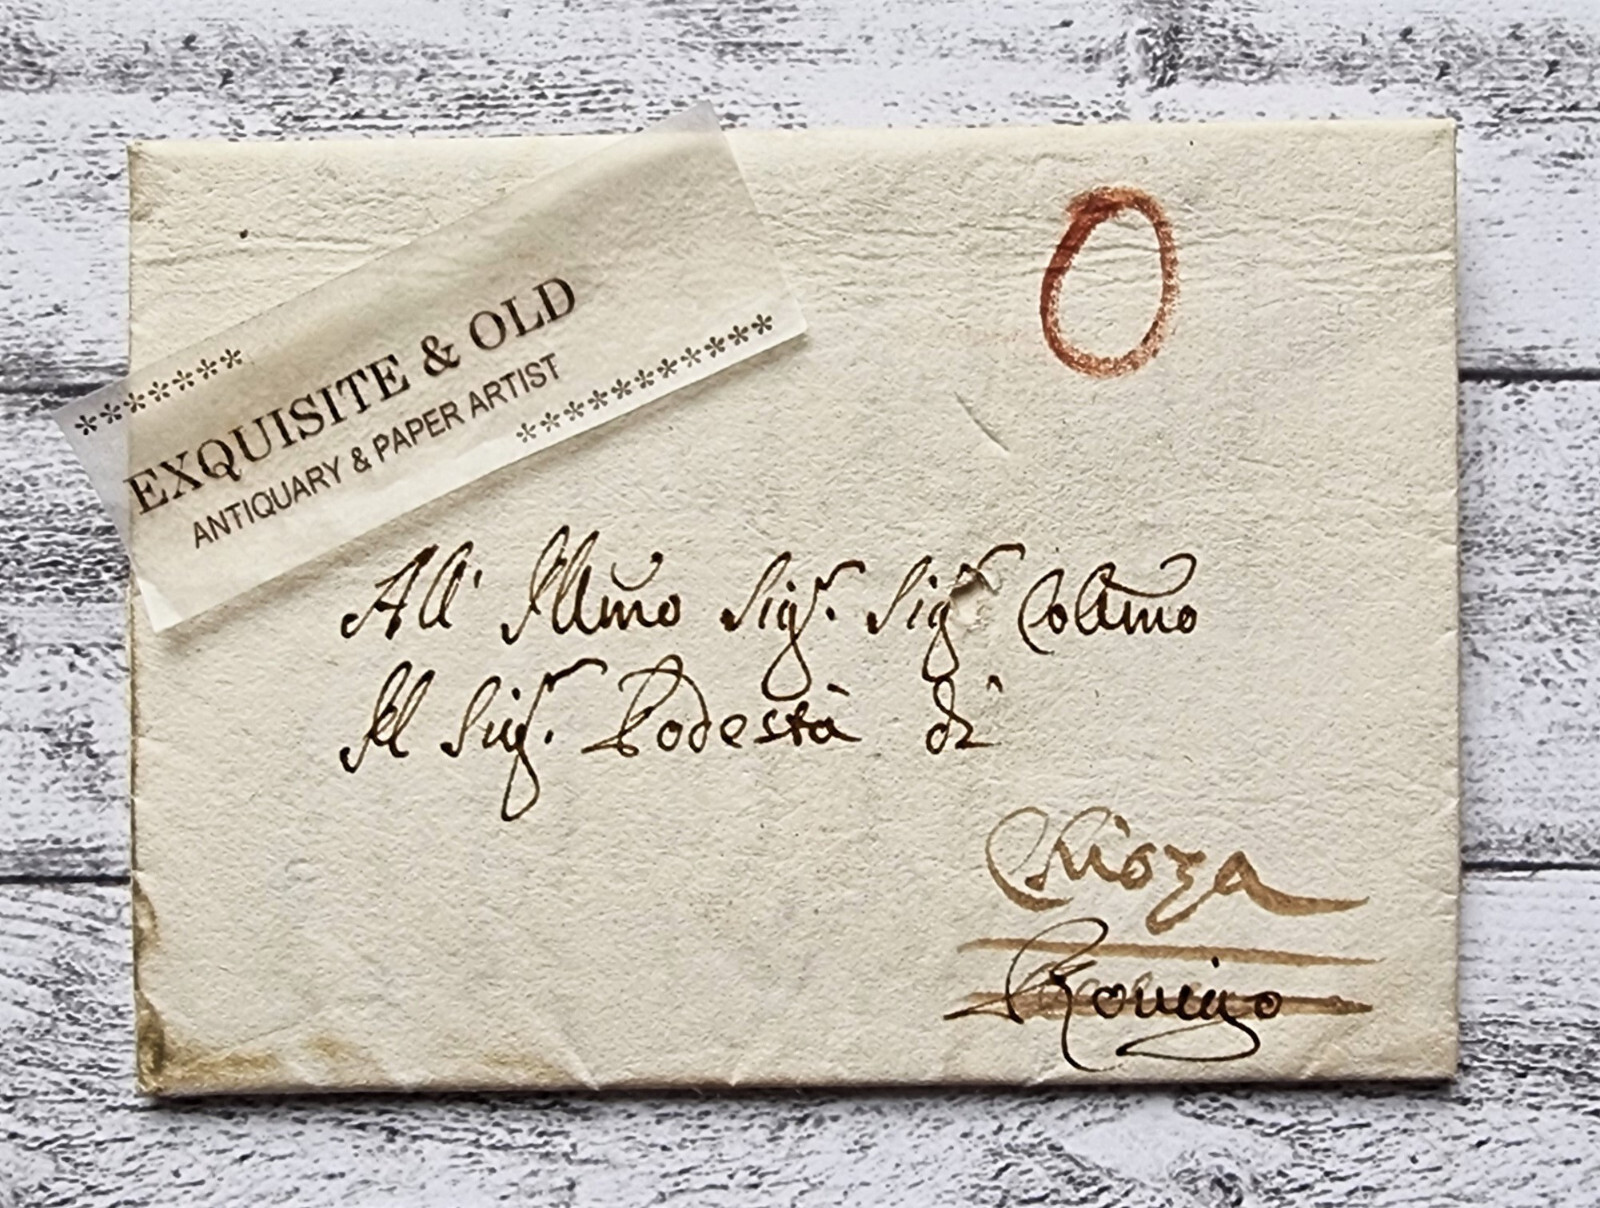 *******
EXQUISITE & OLD
ANTIQUARY & PAPER ARTIST
***********
O
All' Illmo Sigr. Sigr Collmo
Il Sigr. Podestà di
Chioza
Rovigo